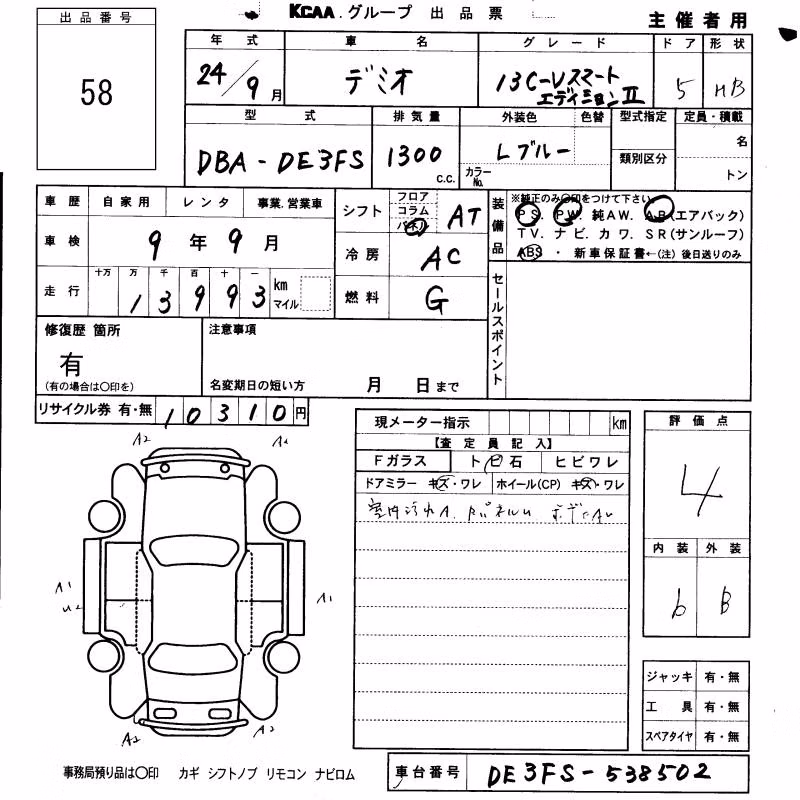 出品番号
KCAA.グループ 出品票
主催者用
58
年式 車名 グレード ドア 形状
24/9月 デミオ 13C-Vスマートエディション II 5 HB
型式 排気量 外装色 色替 型式指定 定員・積載
DBA-DE3FS 1300 C.C. Lブルー 名
カラーNo. 類別区分 トン
車歴 自家用 レンタ 事業,営業車
シフト フロア コラム パネル AT
装備品 ※純正のみ〇印をつけて下さい。
PS. PW. 純AW. AB(エアバック)
TV. ナビ. カワ. SR(サンルーフ)
ABS ・ 新車保証書←(注)後日送りのみ
車検 9年9月
冷房 AC
走行 十万 万 千 百 十 一 km マイル
13993
燃料 G
セールスポイント
修復歴 箇所 注意事項
有
(有の場合は〇印を) 名変期日の短い方 月 日まで
リサイクル券 有・無 10310円
現メーター指示 km
【査定員記入】
Fガラス トビ石 ヒビワレ
ドアミラー キズ・ワレ ホイール(CP) キズ・ワレ
評価点
4
内装 外装
b B
A2 A2
A1
U2
A1
A2 A2
ジャッキ 有・無
工具 有・無
スペアタイヤ 有・無
事務局預り品は〇印 カギ シフトノブ リモコン ナビロム
車台番号 DE3FS-538502